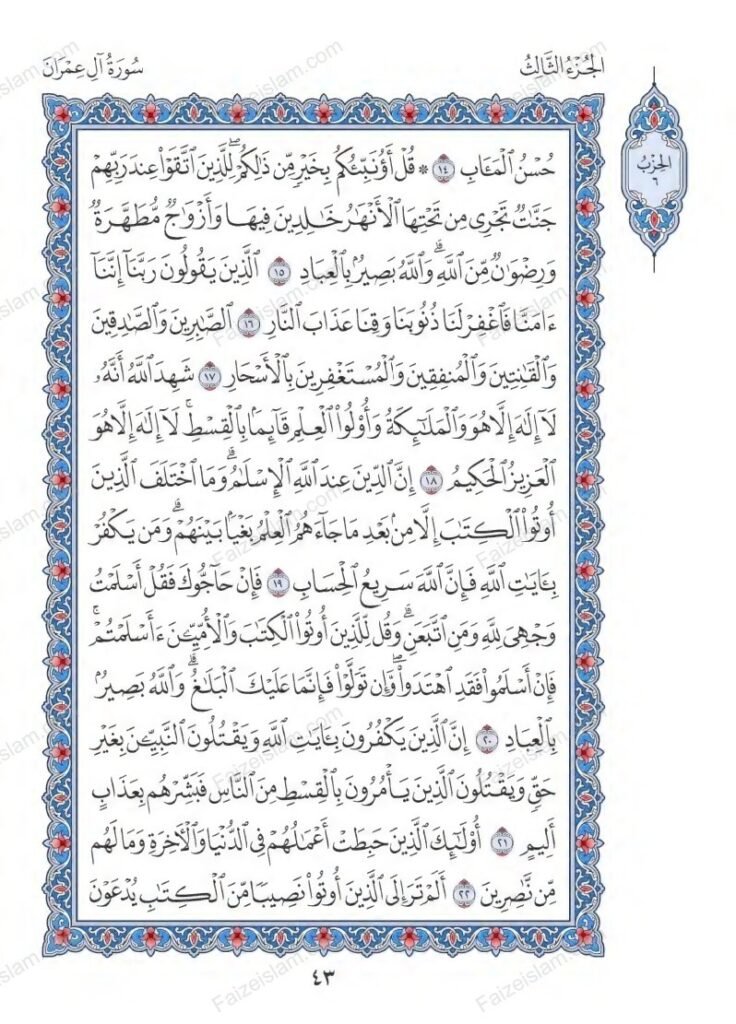 سُورَةُ آلِ عِمْرَانَ
الجُزْءُ الثَّالِثُ
الحِزْبُ
٦
حُسْنُ الْمَـَٔابِ ١٤ * قُلْ أَؤُنَبِّئُكُم بِخَيْرٍ مِّن ذَٰلِكُمْ ۖ لِلَّذِينَ اتَّقَوْا عِندَ رَبِّهِمْ
جَنَّٰتٌ تَجْرِي مِن تَحْتِهَا الْأَنْهَٰرُ خَٰلِدِينَ فِيهَا وَأَزْوَٰجٌ مُّطَهَّرَةٌ
وَرِضْوَٰنٌ مِّنَ اللَّهِ ۗ وَاللَّهُ بَصِيرٌۢ بِالْعِبَادِ ١٥ الَّذِينَ يَقُولُونَ رَبَّنَآ إِنَّنَآ
ءَامَنَّا فَاغْفِرْ لَنَا ذُنُوبَنَا وَقِنَا عَذَابَ النَّارِ ١٦ الصَّٰبِرِينَ وَالصَّٰدِقِينَ
وَالْقَٰنِتِينَ وَالْمُنفِقِينَ وَالْمُسْتَغْفِرِينَ بِالْأَسْحَارِ ١٧ شَهِدَ اللَّهُ أَنَّهُۥ
لَآ إِلَٰهَ إِلَّا هُوَ وَالْمَلَٰٓئِكَةُ وَأُو۟لُوا الْعِلْمِ قَآئِمًۢا بِالْقِسْطِ ۚ لَآ إِلَٰهَ إِلَّا هُوَ
الْعَزِيزُ الْحَكِيمُ ١٨ إِنَّ الدِّينَ عِندَ اللَّهِ الْإِسْلَٰمُ ۗ وَمَا اخْتَلَفَ الَّذِينَ
أُوتُوا الْكِتَٰبَ إِلَّا مِنۢ بَعْدِ مَا جَآءَهُمُ الْعِلْمُ بَغْيًۢا بَيْنَهُمْ ۗ وَمَن يَكْفُرْ
بِـَٔايَٰتِ اللَّهِ فَإِنَّ اللَّهَ سَرِيعُ الْحِسَابِ ١٩ فَإِنْ حَآجُّوكَ فَقُلْ أَسْلَمْتُ
وَجْهِيَ لِلَّهِ وَمَنِ اتَّبَعَنِ ۗ وَقُل لِّلَّذِينَ أُوتُوا الْكِتَٰبَ وَالْأُمِّيِّـۧنَ ءَأَسْلَمْتُمْ ۚ
فَإِنْ أَسْلَمُوا فَقَدِ اهْتَدَوا ۖ وَّإِن تَوَلَّوْا فَإِنَّمَا عَلَيْكَ الْبَلَٰغُ ۗ وَاللَّهُ بَصِيرٌۢ
بِالْعِبَادِ ٢٠ إِنَّ الَّذِينَ يَكْفُرُونَ بِـَٔايَٰتِ اللَّهِ وَيَقْتُلُونَ النَّبِيِّـۧنَ بِغَيْرِ
حَقٍّ وَيَقْتُلُونَ الَّذِينَ يَأْمُرُونَ بِالْقِسْطِ مِنَ النَّاسِ فَبَشِّرْهُم بِعَذَابٍ
أَلِيمٍ ٢١ أُو۟لَٰٓئِكَ الَّذِينَ حَبِطَتْ أَعْمَٰلُهُمْ فِي الدُّنْيَا وَالْءَاخِرَةِ وَمَا لَهُم
مِّن نَّٰصِرِينَ ٢٢ أَلَمْ تَرَ إِلَى الَّذِينَ أُوتُوا نَصِيبًا مِّنَ الْكِتَٰبِ يُدْعَوْنَ
٤٣
Faizeislam.com